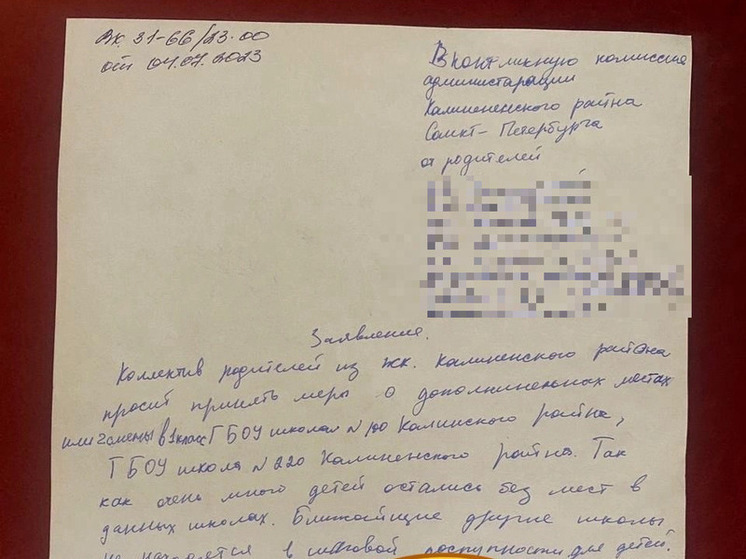 Вх 31-66/23.00
от 04.07.2023
В конфликную комиссию
администарации
Калининенского района
Санкт-Петербурга
от родителей
Заявление.
Коллектив родителей из жк. Калиненского района
просит принять меры о дополнительных местах
или 2 смены в 1 класс ГБОУ школа N 100 Калинского района,
ГБОУ школа N 220 Калиненского района. Так
как очень много детей остались без мест в
данных школах. Ближайщие другие школы
не находятся в шаговой доступности для детей.